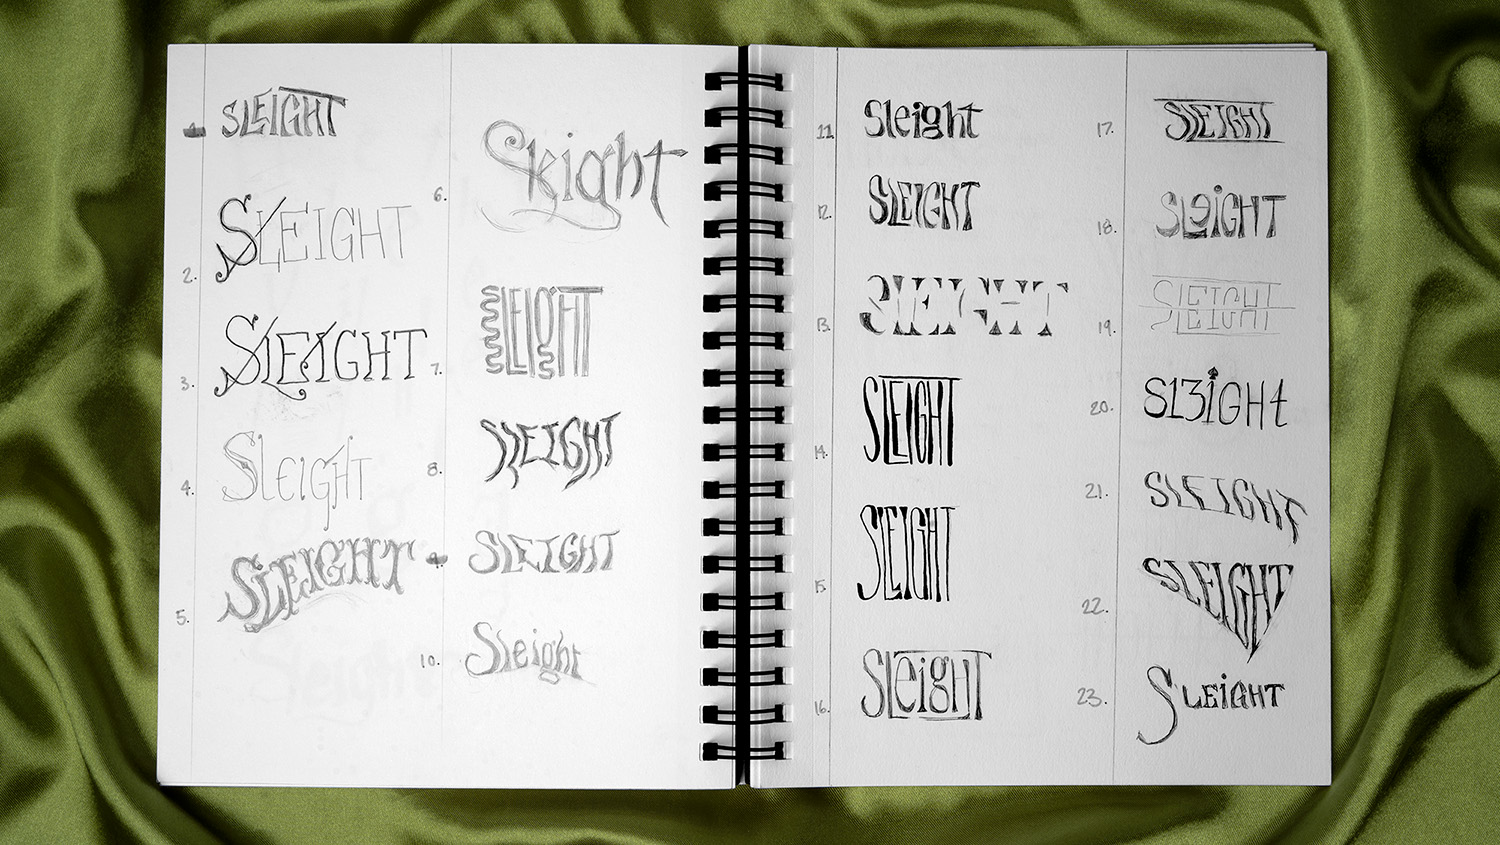 SLEIGHT
2. SLEIGHT
3. SLEIGHT
4. SLEIGHT
5. SLEIGHT
6. Sleight
7. SLEIGHT
8. SLEIGHT
SLEIGHT
10. Sleight
11. Sleight
12. SLEIGHT
13. SLEIGHT
14. SLEIGHT
15. SLEIGHT
16. SLeigHT
17. SLEIGHT
18. SLeiGHT
19. SLEIGHT
20. S13iGHt
21. SLEIGHT
22. SLEIGHT
23. SLEiGHT